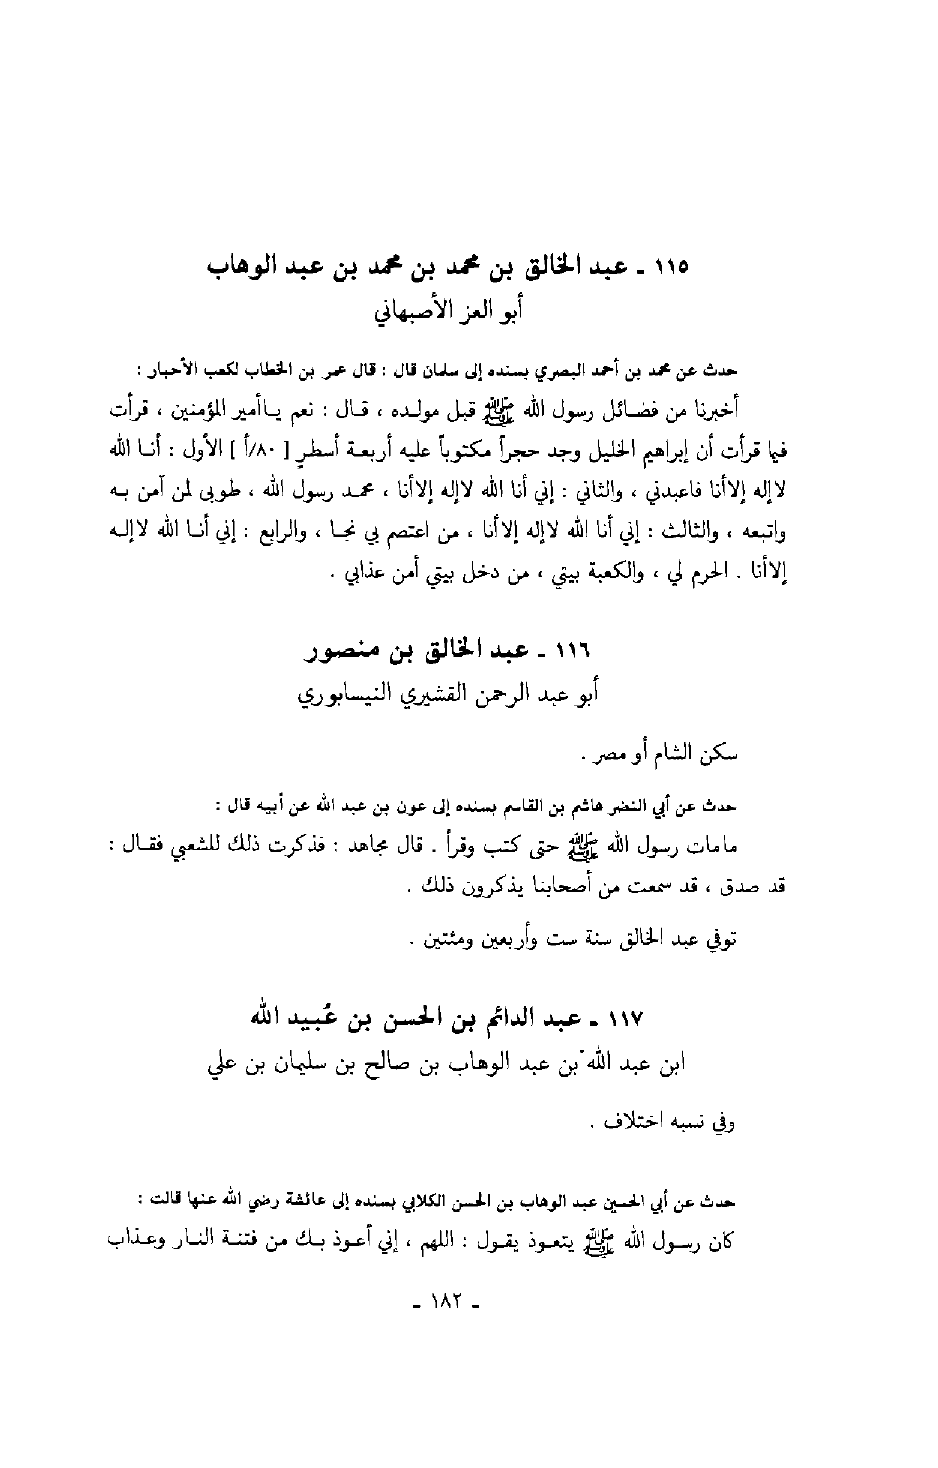 ١١٥ ـ عبد الخالق بن محمد بن محمد بن عبد الوهاب
أبو العز الأصبهاني
حدث عن محمد بن أحمد البصري بسنده إلى سلمان قال : قال عمر بن الخطاب لكعب الأحبار :
أخبرنا من فضائل رسول الله ﷺ قبل مولده ، قال : نعم ياأمير المؤمنين ، قرأت
فيما قرأت أن إبراهيم الخليل وجد حجراً مكتوباً عليه أربعة أسطرٍ [ ٨٠/أ ] الأول : أنا الله
لاإله إلاأنا فاعبدني ، والثاني : إني أنا الله لاإله إلاأنا ، محمد رسول الله ، طوبى لمن آمن به
واتبعه ، والثالث : إني أنا الله لاإله إلاأنا ، من اعتصم بي نجا ، والرابع : إني أنا الله لاإله
إلاأنا . الحرم لي ، والكعبة بيتي ، من دخل بيتي أمن عذابي .
١١٦ ـ عبد الخالق بن منصور
أبو عبد الرحمن القشيري النيسابوري
سكن الشام أو مصر .
حدث عن أبي النضر هاشم بن القاسم بسنده إلى عون بن عبد الله عن أبيه قال :
مامات رسول الله ﷺ حتى كتب وقرأ . قال مجاهد : فذكرت ذلك للشعبي فقال :
قد صدق ، قد سمعت من أصحابنا يذكرون ذلك .
توفي عبد الخالق سنة ست وأربعين ومئتين .
١١٧ ـ عبد الدائم بن الحسن بن عُبيد الله
ابن عبد الله بن عبد الوهاب بن صالح بن سليمان بن علي
وفي نسبه اختلاف .
حدث عن أبي الحسين عبد الوهاب بن الحسن الكلابي بسنده إلى عائشة رضي الله عنها قالت :
كان رسول الله ﷺ يتعوذ يقول : اللهم ، إني أعوذ بك من فتنة النار وعذاب
ـ ١٨٢ ـ